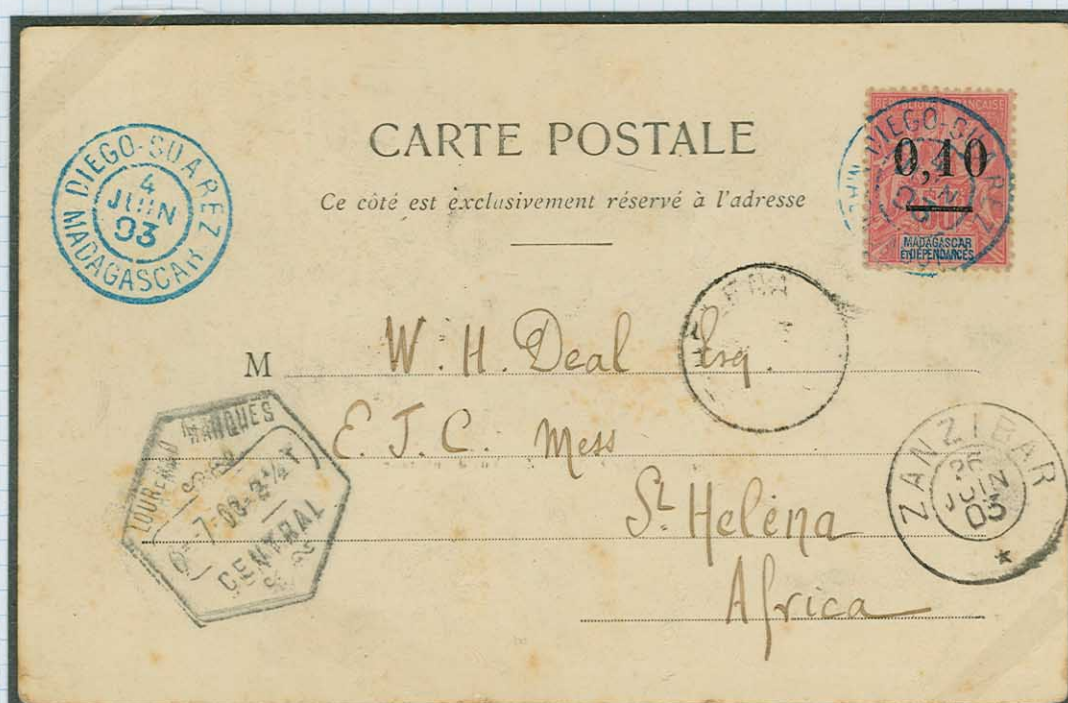 CARTE POSTALE
Ce côté est exclusivement réservé à l'adresse
DIEGO-SUAREZ
4
JUIN
03
MADAGASCAR
RÉPUBLIQUE FRANÇAISE
DIEGO-SUAREZ
0,10
MADAGASCAR
ET DÉPENDANCES
M W. H. Deal Esq.
E. T. C. Mess
St. Helena
Africa
LOURENÇO MARQUES
CENTRAL
ZANZIBAR
JUIN
03